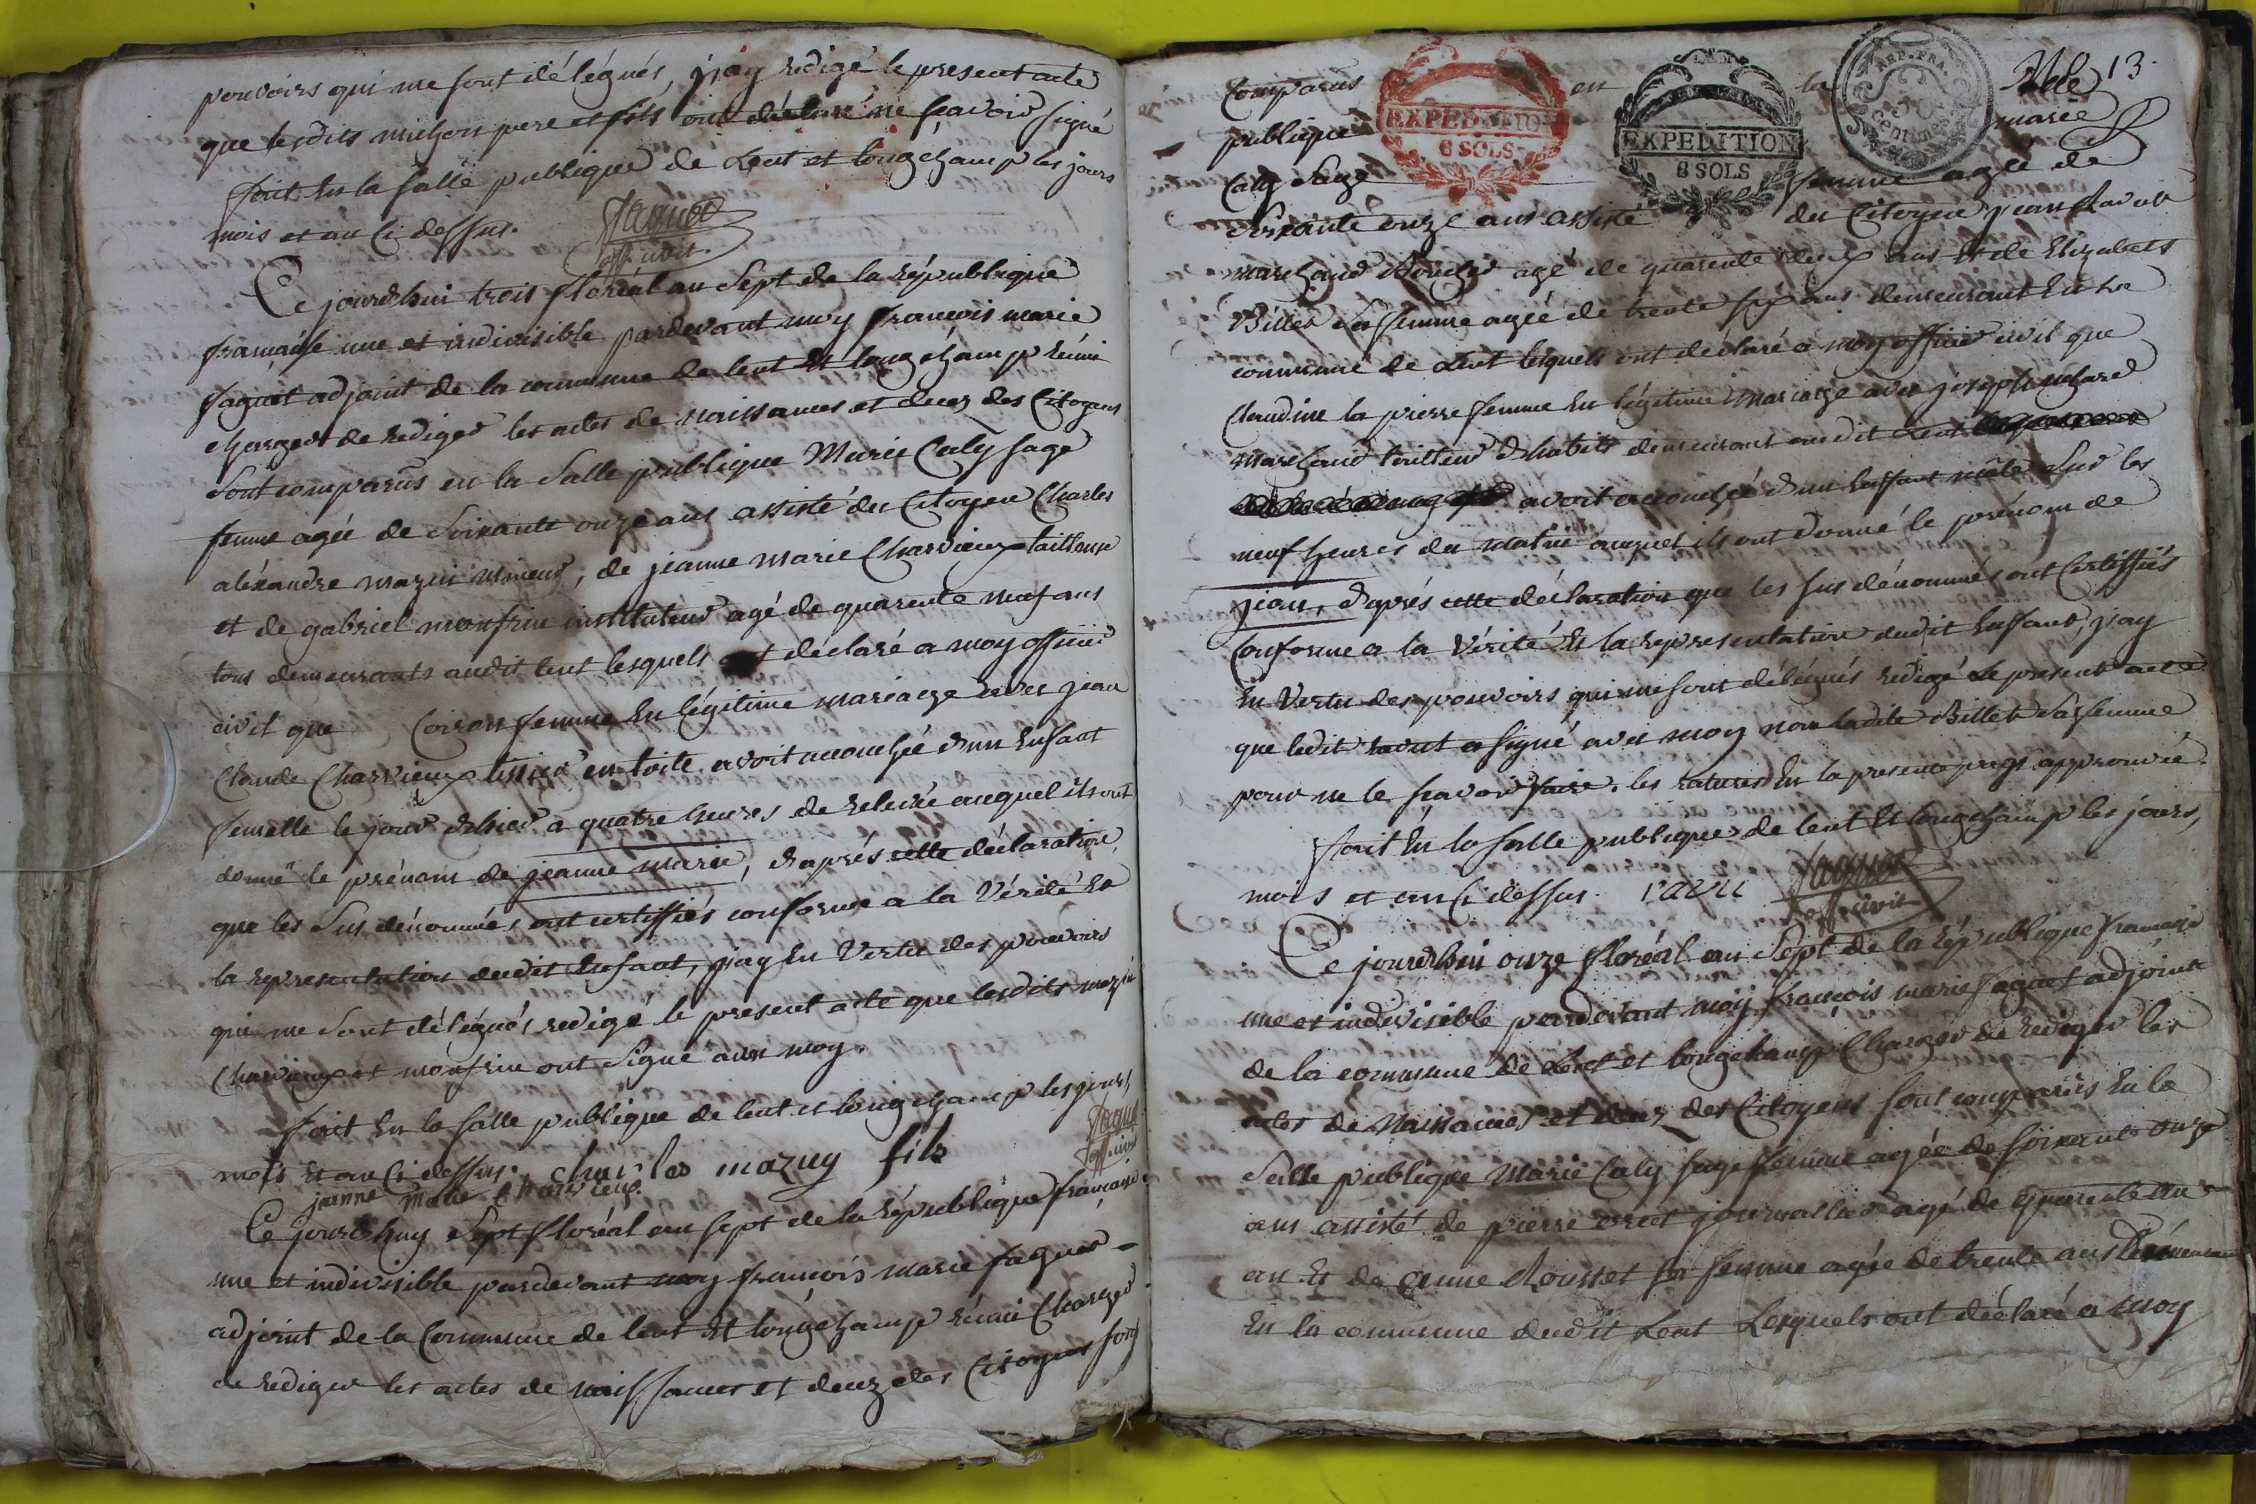 pouvoirs qui me sont délégués, j'ay redigé le present acte
que lesdits michon pere et fils ont déclaré ne sçavoir signé
fait en la salle publique de Lent et longchamp les jours
mois et an ci dessus. faguet
off. civil
Ce jourdhui trois floréal an Sept de la république
françaїse une et indivisible pardevant moy françois marie
faguet adjoint de la commune de lent et longchamp réuni
charger de rediger les actes de naissances et decez des Citoyens
Sont comparus en la Salle publique Marie Caly sage
femme agée de Soixante onze ans assisté du Citoyen Charles
aléxandre mazui mineur, de jeanne marie Charvieux tailleuse
et de gabriel monfrin instituteur agé de quarente neuf ans
tous demeurants audit lent lesquels ont déclaré a moy officier
civil que Coiron femme en légitime mariage avec jean
Claude Charvieux tissier en toile avoit accouchée d'un enfant
femelle le jour d'hier a quatre heures de relevée auquel ils ont
donné le prénom de jeanne marie, d'aprés cette déclaration
que les Sus dénommés ont certiffiés conforme a la Vérité et
la representation dudit enfant, j'ay en Vertu des pouvoirs
qui me Sont délégués redigé le present acte que lesdits mazui
Charvieux et monfrin ont Signé avec moy.
fait en la salle publique de lent et longchamp les jours
mois et an ci dessus. charles mazuy fils faguet
off. civil
jeanne marie charvieux
Ce jourdhuy Sept floréal an sept de la république française
une et indivisible pardevant moy françois marie faguet
adjoint de la Commune de lent et longchamp réuni Charger
de rediger les actes de naissances et decez des Citoyens sont
13.
Comparus en la Salle
publique marie
Caly Sage femme agée de
EXPEDITION
8 SOLS
EXPEDITION
8 SOLS
REP. FRA.
50
centimes
Soixante onze ans assisté du Citoyen jean Ravut
marchand Boucher agé de quarente deux ans et de Elizabeth
Billet sa femme agée de trente six ans demeurant en la
commune de Lent lesquels ont déclaré a moy officier civil que
Claudine la pierre femme en légitime mariage avec joseph
marchand tailleur d'habits demeurant audit Lent
avoit accouchée d'un enfant mâle Sur les
neuf heures du matin auquel ils ont donné le prénom de
jean, d'aprés cette déclaration que les sus dénommés ont Certiffiés
Conforme a la Vérité et la representation dudit enfant, j'ay
en Vertu des pouvoirs qui me sont délégués redigé le present acte
que ledit ravut a signé avec moy non ladite Billet Sa femme
pour ne le sçavoir faire. les ratures en la presente page approuvée.
fait en la salle publique de lent et longchamp les jours,
mois et an ci dessus. ravu faguet
off. civil
Ce jourdhui onze floréal an Sept de la république française
une et indivisible pardevant moy françois marie faguet adjoint
de la commune de Lent et longchamp Charger de rediger les
actes de Naissances et decez des Citoyens sont comparus en la
Salle publique Marie Caly Sage femme agée de soixante onze
ans assisté de pierre journalier agé de quarente un
an et de Rousset sa femme agée de trente ans demeurant
en la commune dudit Lent Lesquels ont déclaré a moy